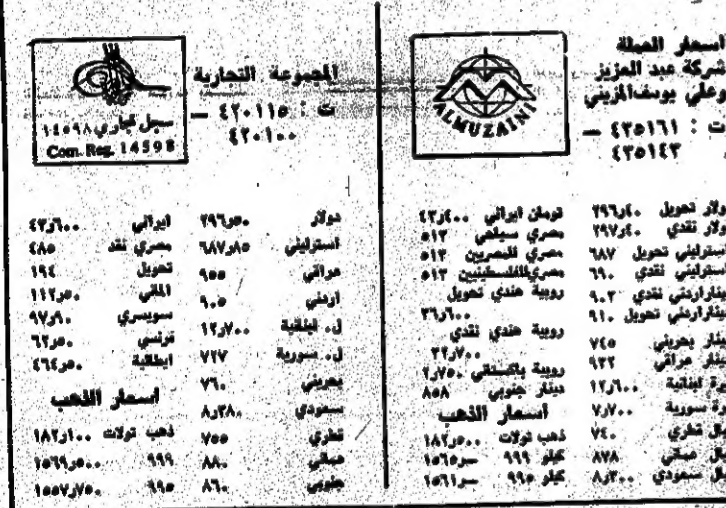 أسعار العملة
شركة عبد العزيز
وعلي يوسف المزيني
ت : ٤٣٥١٦١ —
٤٣٥١٤٣
ALMUZAINI
دولار تحويل ٢٩٦٫٤٠
دولار نقدي ٢٩٧٫٤٠
استرليني تحويل ٦٨٧
استرليني نقدي ٦٩٠
ديناراردني نقدي ٩٠٢
ديناراردني تحويل ٩١٠
دينار بحريني ٧٤٥
دينار عراقي ٩٣٢
ليرة لبنانية ١٢٫٦٠٠
ليرة سورية ٧٫٧٠٠
ريال قطري ٧٤٠
ريال عماني ٨٧٨
ريال سعودي ٨٫٣٠٠
تومان ايراني ٤٣٫٤٠٠
مصري سياحي ٥١٣
مصري للمصريين ٥١٣
مصري للفلسطينيين ٥١٣
روبية هندي تحويل
٣٦٫٦٠٠
روبية هندي نقدي
٣٣٫٧٠٠
روبية باكستاني ٢٫٧٥٠
دينار جنوبي ٨٥٨
أسعار الذهب
ذهب تولات ١٨٢٫٥٠٠
كيلو ٩٩٩ سر١٥٦٥
كيلو ٩٩٥ سر١٥٦١
المجموعة التجارية
ت : ٤٢٠١١٥ —
٤٢٠١٠٠
سجل تجاري ١٤٥٩٨
Com. Reg. 14598
دولار ٢٩٦٫٥٠
استرليني ٦٨٧٫٨٥
عراقي ٩٥٥
اردني ٩٠٥
ل. لبنانية ١٢٫٧٠٠
ل. سورية ٧٢٧
بحريني ٧٦٠
سعودي ٨٫٣٨٠
قطري ٧٥٥
عماني ٨٨٠
جنوبي ٨٦٠
ايراني ٤٣٫٦٠٠
مصري نقد ٤٨٥
تحويل ١٩٤
الماني ١١٢٫٥٠
سويسري ٩٧٫٩٠
فرنسي ٦٢٫٥٠
ايطالية ٤٦٤٫٥٠
أسعار الذهب
ذهب تولات ١٨٢٫١٠٠
٩٩٩ ١٥٦٩٫٥٠٠
٩٩٥ ١٥٥٧٫٧٥٠